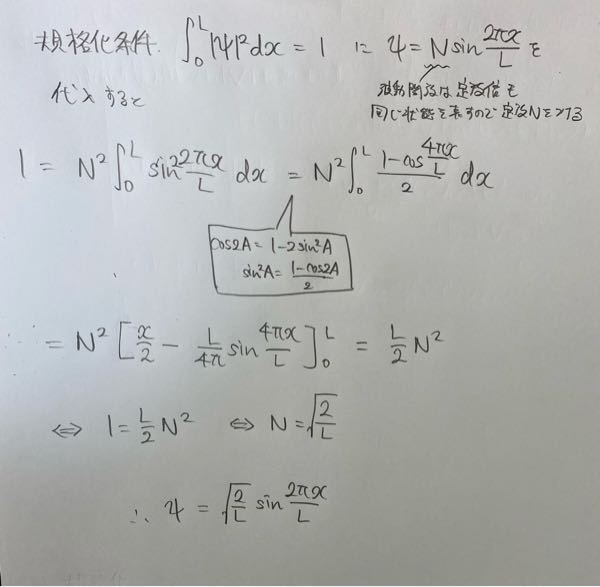 規格化条件 ∫₀ᴸ|ψ|²dx = 1 に ψ = N sin 2πx/L を
代入すると
波動関数は定数倍も
同じ状態を表すので定数Nをつける
1 = N² ∫₀ᴸ sin² 2πx/L dx = N² ∫₀ᴸ (1-cos 4πx/L)/2 dx
cos2A = 1-2sin²A
sin²A = (1-cos2A)/2
= N² [x/2 - L/4π sin 4πx/L]₀ᴸ = L/2 N²
⇔ 1 = L/2 N² ⇔ N = √(2/L)
∴ ψ = √(2/L) sin 2πx/L